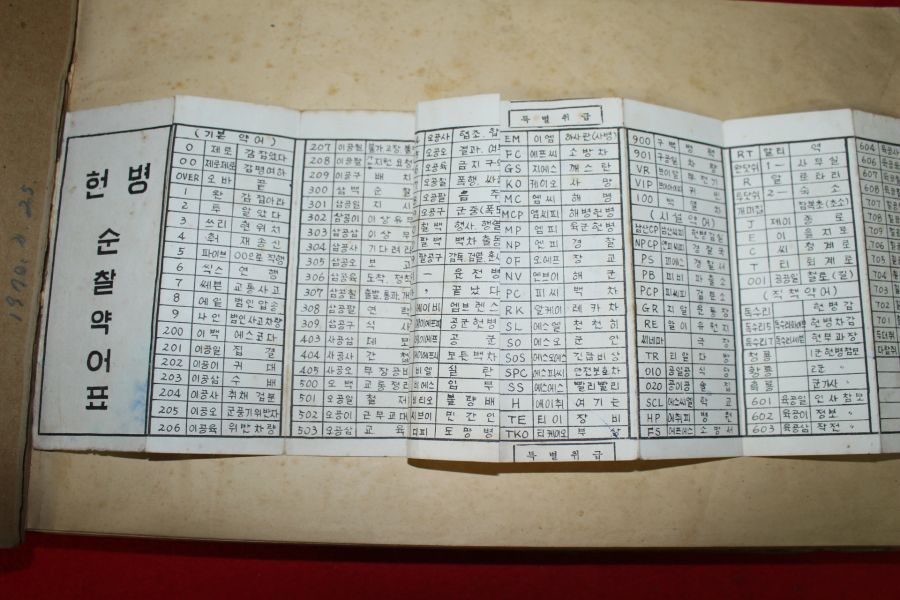 헌병
순찰약어표
(기본 약어)
0 제로 감잡았다
00 제로제로 감명여하
OVER 오바 끝
1 완 감잡아라
2 투 알았다
3 쓰리 현위치
4 훠 재송신
5 파이브 00으로 직행
6 식스 연행
7 쎄븐 교통사고
8 에잍 범인압송
9 나인 범인사고차량
200 이백 에스코타
201 이공일 집결
202 이공이 귀대
203 이공삼 수배
204 이공사 취재검문
205 이공오 군풍기위반자
206 이공육 위반차량
207 이공칠
208 이공팔
209 이공구 배치
300 삼백 순찰
301 삼공일 지시
302 삼공이 이상유무
303 삼공삼 이상무
304 삼공사 기다려라
305 삼공오 보고
306 삼공육 도착, 정착
307 삼공칠 출발, 통과,
308 삼공팔 연락
309 삼공구 식사
403 사공삼 제보
404 사공사 간첩
405 사공오 부장공비
500 오백 교통정리
501 오공일 철저
502 오공이 근무교대
503 오공삼 교육
오공사 협조,
오공오 결과,
오공육 금지구역
오공칠 폭행,
오공팔 음주
오공구 군중(폭도
칠백 행사,
팔백 백차출동
팔공구
운전병
끝났다
에이비 엠브렌스
공군헌병
공군
보튼백차
비얼 실탄
비에스 입부
비티오 불량배
시브이 민간인
디피 도망병
특별취급
EM 이엠 하사관(사병)
FC 에프씨 소방차
GS 지에스 깨스탄
KO 케이오 사망
MC 엠씨 해병
MCP 엠씨피 해병헌병
MP 엠피 육군헌병
NP 엔피 경찰
OF 오에프 장교
NV 엔브이 해군
PC 피씨 백차
RK 알케이 레카차
SL 에스엘 천천히
SO 에스오 군인
SOS 에스오에스 긴급비상
SPC 에스피씨 안전보호차
SS 에스에스 빨리빨리
H 에이취 여기는
TE 티이 장비
TKO 티케이오 부상
특별취급
900 구백 병원
901 구공일 차량
VR 브이알
VIP 브이아이피 귀빈
100 백 열차
(시설약어)
남산CP 남산씨피 헌병감실
NPCP 엔피씨피 경찰국
PS 피에스 경찰서
PB 피비 파출소
PCP 피씨피 검문소
GR 지알 운동장
RE 알이 유원지
씨네마 극장
TR 티알 다방
010 공일공 식당
020 공이공 술집
SCL 에스씨엘 학교
HP 에취피 병원
FS 에프에스 소방서
RT 알티 역
완닷쉬 1- 사무실
R 알 로타리
투닷쉬 2- 숙소
개미집 잠복초(초소)
J 제이 종로
E 이 을지로
C 씨 청계로
T 티 퇴계로
001 공공일 찰로(길)
(직책약어)
독수리 헌병감
독수리5 독수리화이브 헌병차감
독수리7 독수리쎄븐 헌부과장
청룡 1군헌병참모
황룡 2군 〃
흑룡 군기사 〃
601 육공일 인사참모
602 육공이 정보 〃
603 육공삼 작전 〃
604 육공사
606 육공육
607 육공칠
608 육공팔
707
708
709
706
705
704
703
702
701
1970.